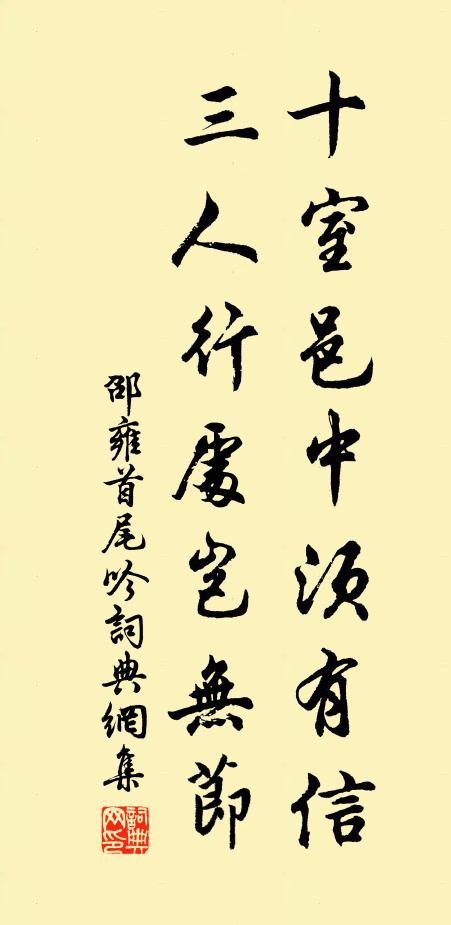 十室邑中須有信
三人行處豈無節
邵雍首尾吟詞典網集
詞典網印